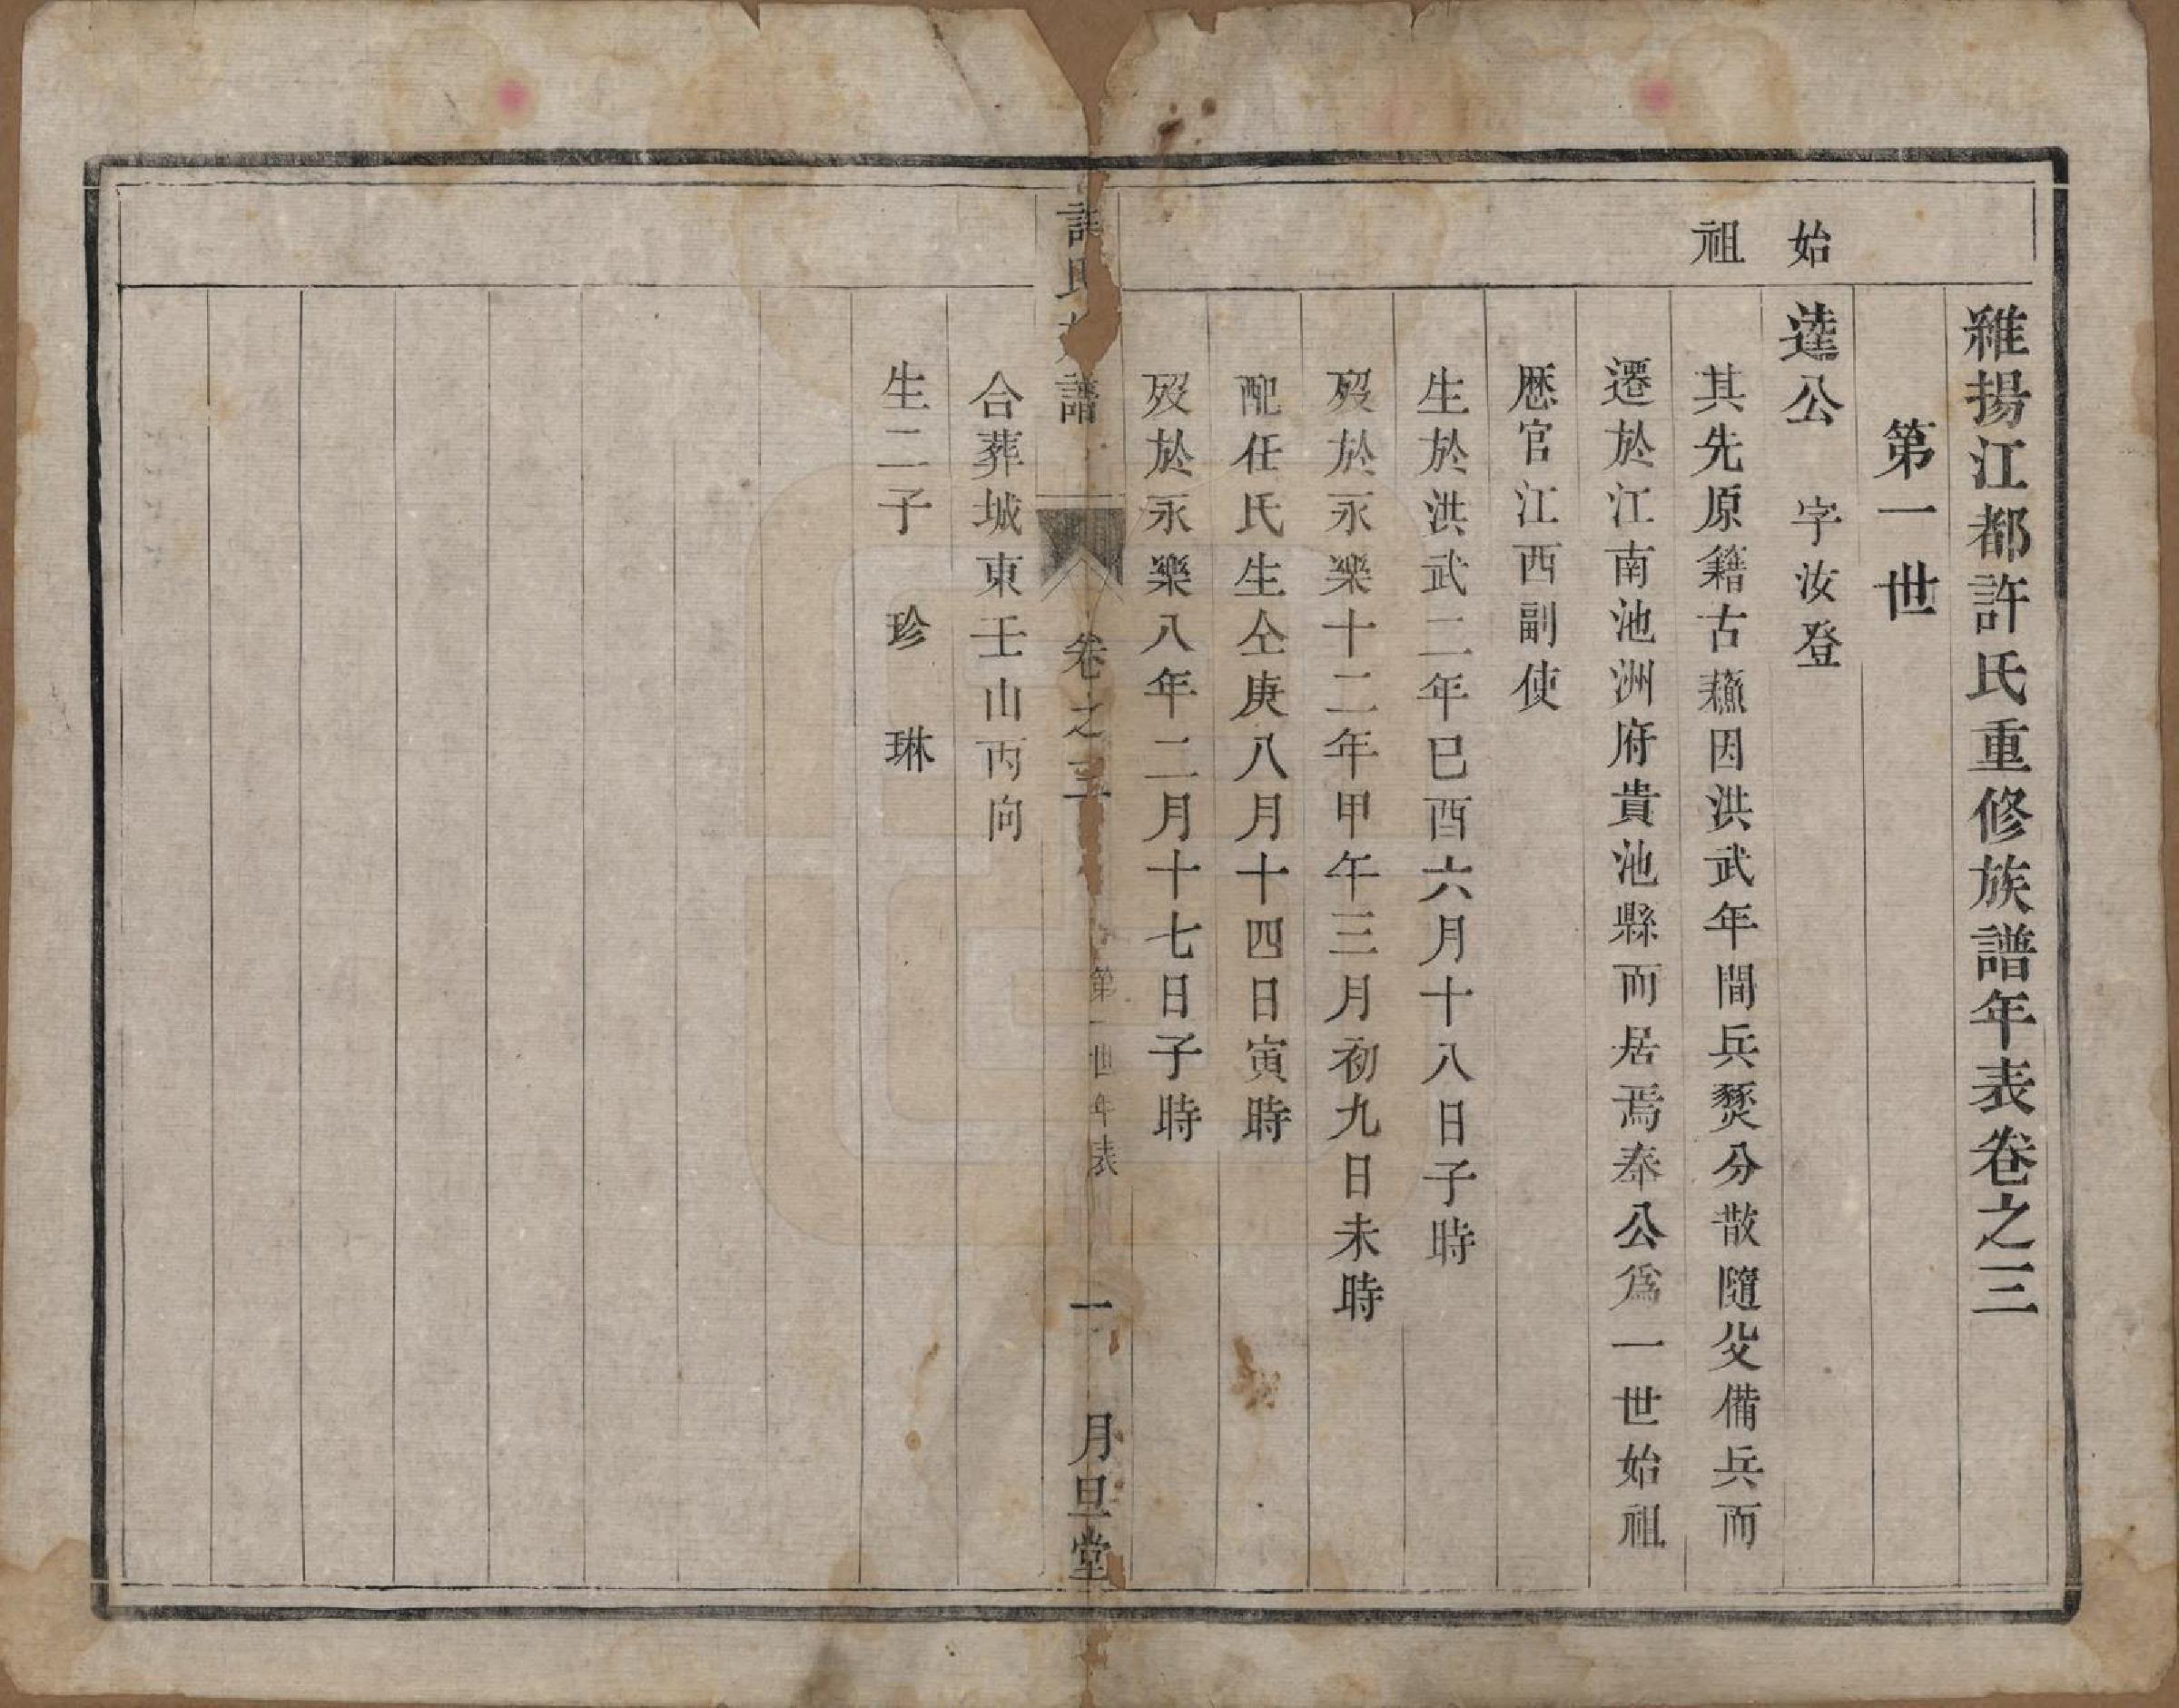 維揚江都許氏重修族譜年表卷之三
第一世
始祖
達公 字汝登
其先原籍古蘓因洪武年間兵燹分散隨父備兵而
遷於江南池洲府貴池縣而居焉奉公爲一世始祖
歷官江西副使
生於洪武二年巳酉六月十八日子時
歿於永樂十二年甲午三月初九日未時
配任氏生仝庚八月十四日寅時
歿於永樂八年二月十七日子時
許氏族譜 卷之三 第一世年表 一 月旦堂
合葬城東壬山丙向
生二子 珍 琳